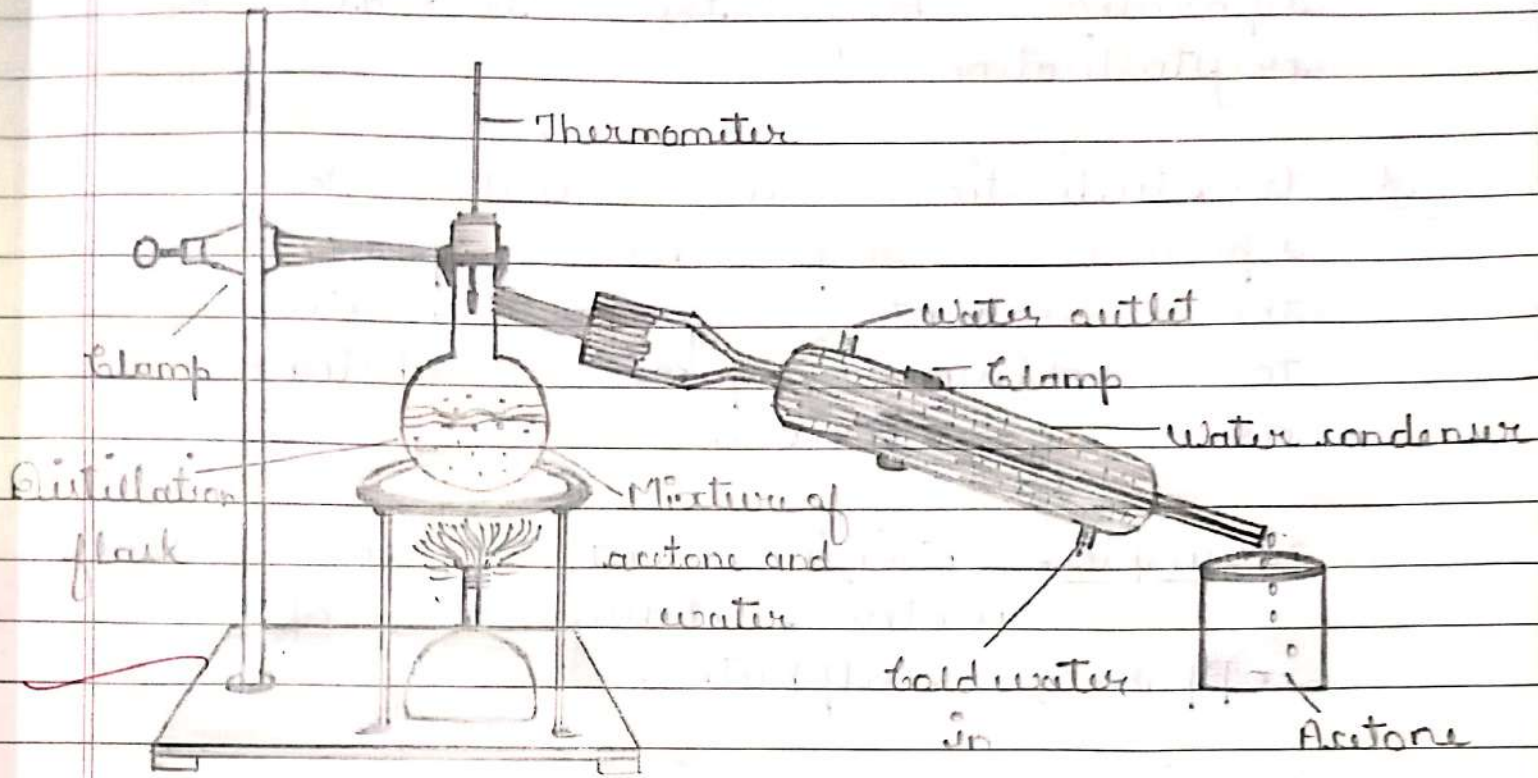 Thermometer
Water outlet
Clamp
Clamp
Water condenser
Distillation
flask
Mixture of
acetone and
water
Cold water
in
Acetone